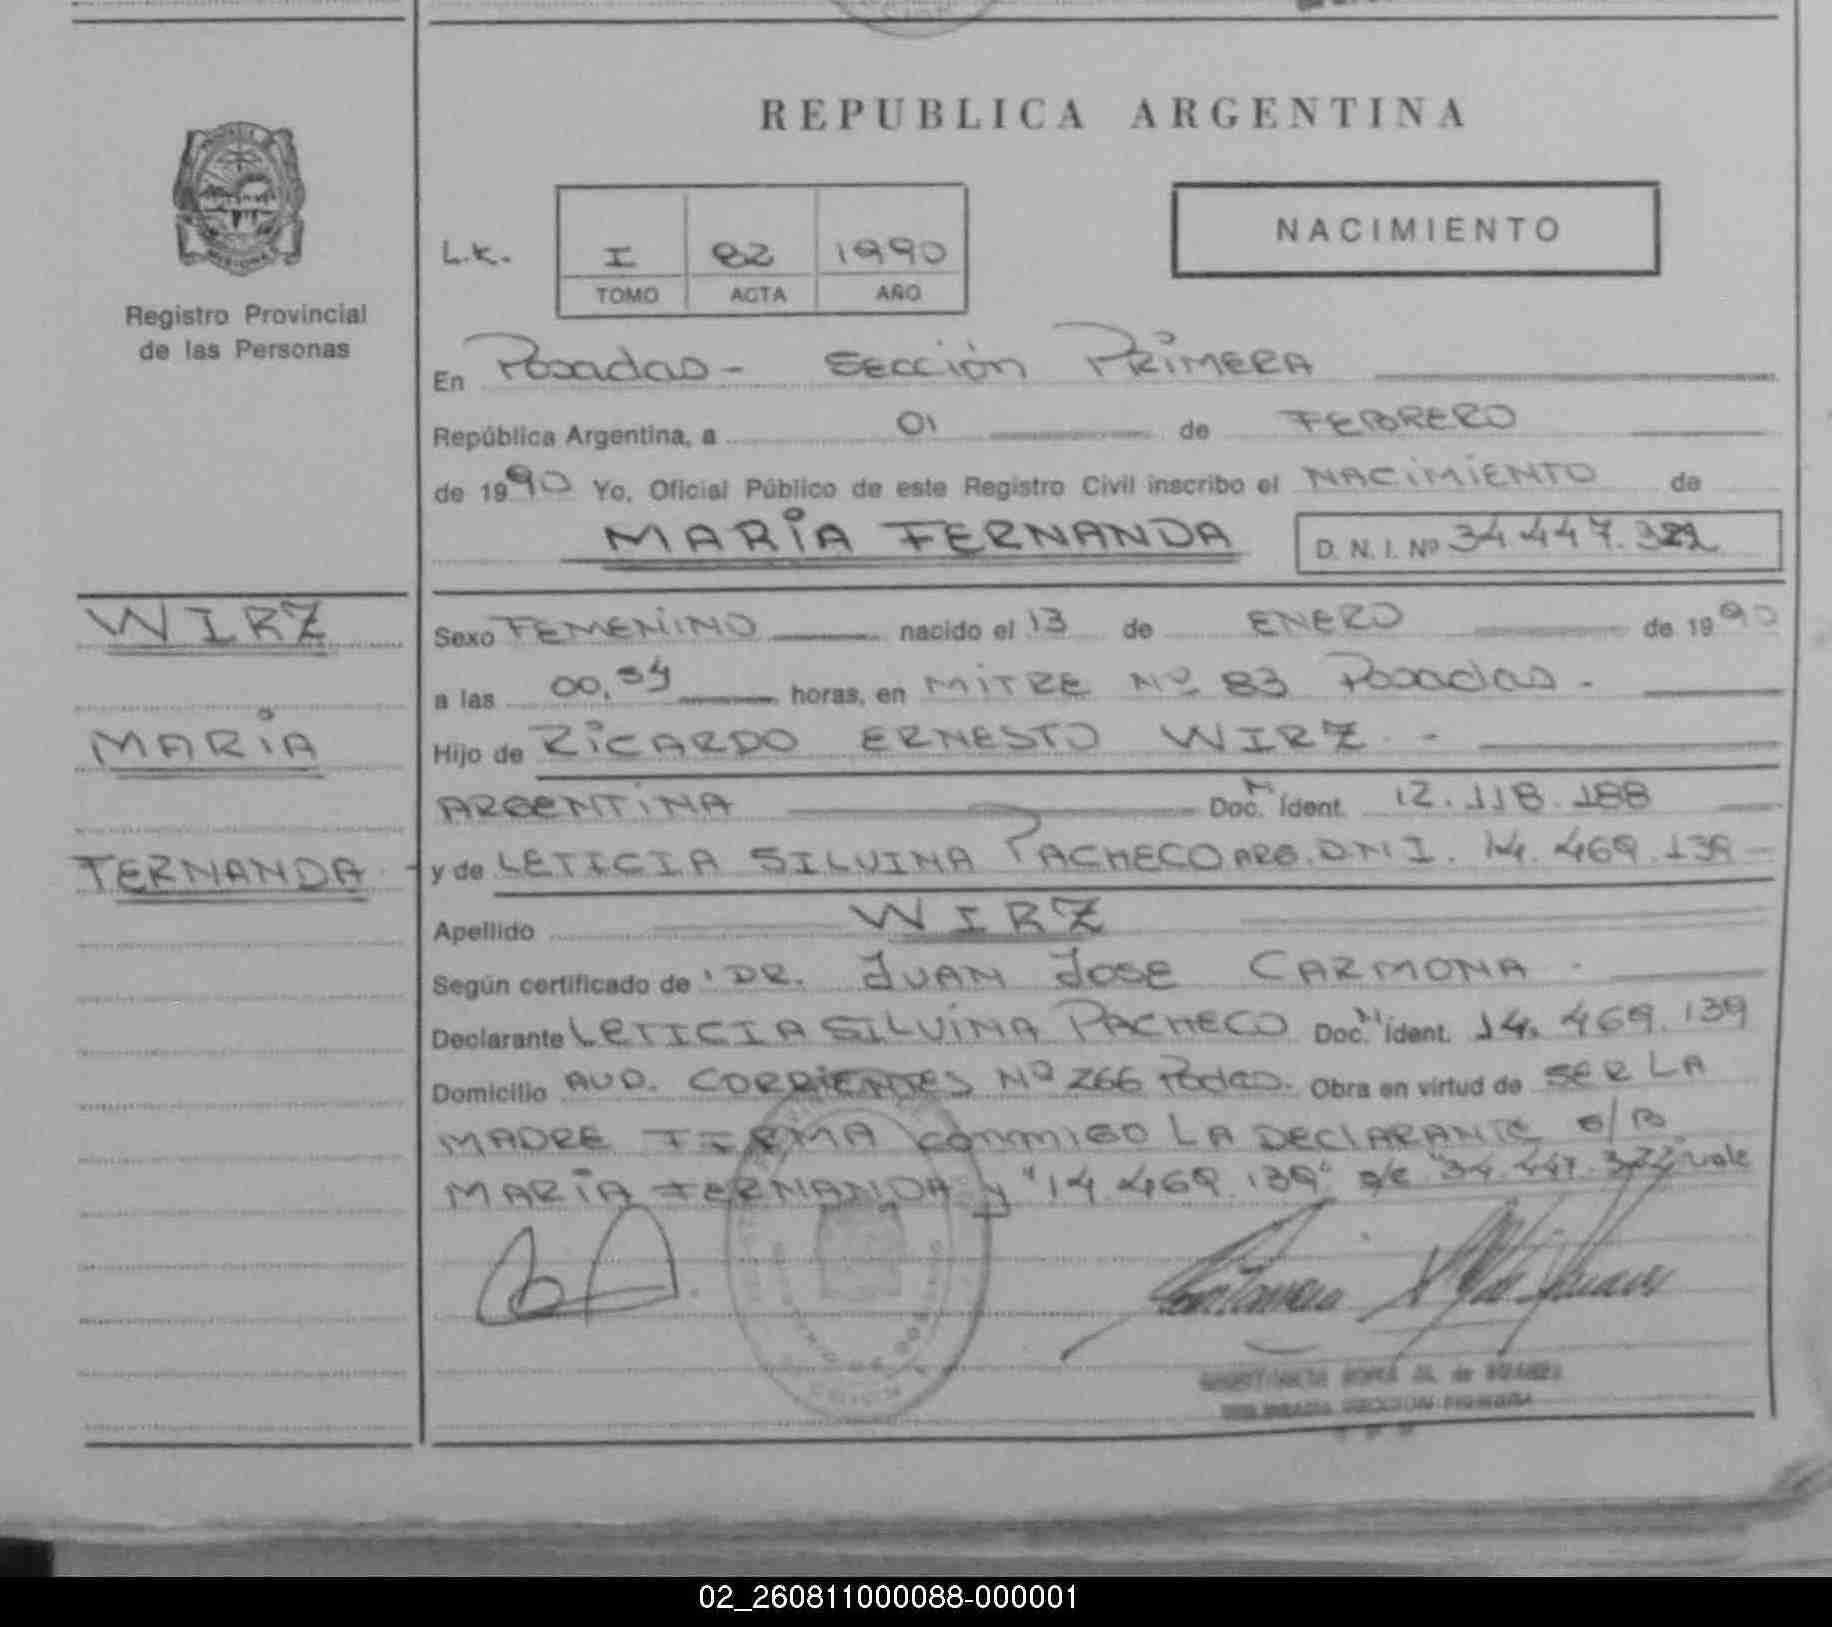 REPUBLICA ARGENTINA
NACIMIENTO
L.K. I 82 1990
TOMO ACTA AÑO
Registro Provincial
de las Personas
En Posadas - Sección Primera
República Argentina, a 01 de FEBRERO
de 1990 Yo, Oficial Público de este Registro Civil inscribo el NACIMIENTO de
MARIA FERNANDA D.N.I. Nº 34.447.322
WIRZ
MARIA
FERNANDA
Sexo FEMENINO nacido el 13 de ENERO de 1990
a las 00,34 horas, en MITRE Nº 83 Posadas -
Hijo de RICARDO ERNESTO WIRZ. -
ARGENTINA Doc. Ident. 12.118.188
y de LETICIA SILVINA PACHECO ARG. D.N.I. 14.469.139 -
Apellido WIRZ
Según certificado de DR. JUAN JOSE CARMONA
Declarante LETICIA SILVINA PACHECO Doc. Ident. 14.469.139
Domicilio AVD. CORRIENTES Nº 266 Pdas. Obra en virtud de SER LA
MADRE FIRMA CONMIGO LA DECLARANTE S/R
MARIA FERNANDA y "14.469.139" s/e "34.447.322" vale
SECCION PRIMERA
02_260811000088-000001